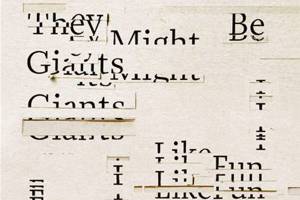 They Be
Might
Giants
Might
Giants
Giants
Like
I Like Fun
Like Fun